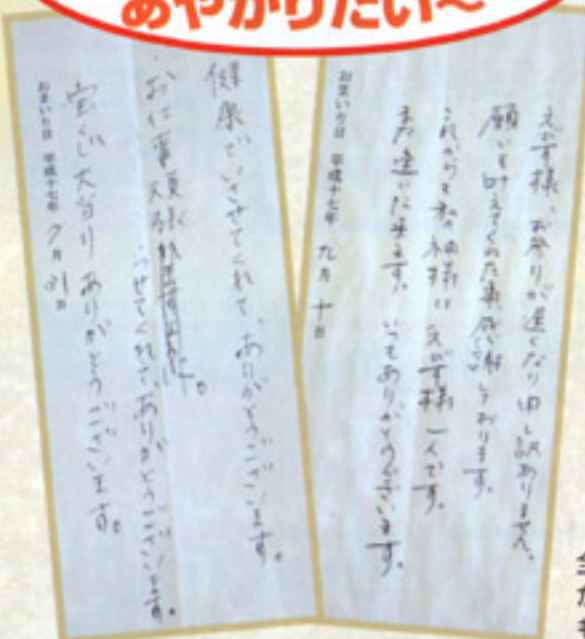 あやかりたい〜
えびす様、お参りが遅くなり申し訳ありません。
願いを叶えてくれた事感謝しております。
これからも私の神様は えびす様一人です。
また逢いに来ます。 いつもありがとうございます。
おまいり日 平成十七年 九月 十日
健康でいさせてくれて、ありがとうございます。
お仕事頑張
らせてくれてありがとうございます。
宝くじ大当り ありがとうございます。
おまいり日 平成十七年 7月 31日